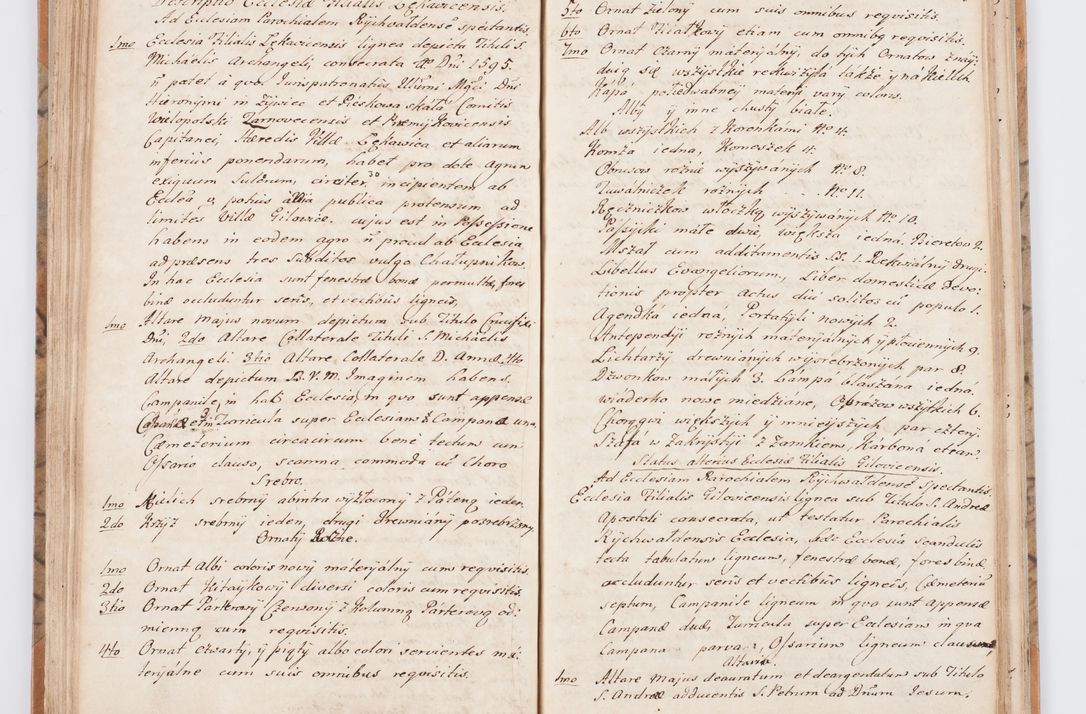 Descriptio Ecclesiæ Filialis Lękavicensis
Ad Ecclesiam Parochialem Rychwaldensē spectantis.
1mo Ecclesia Filialis Lękavicensis lignea depicta Tituli S.
Michaelis Archangeli, consecrata Aō Dni 1595.
ū patet a quo. Jurispatronatus Illūmi Mgci Dni
Hieronymi in Zÿwiec et Pieskowa skała Comitis
Wielopolski Zarnovecensis et
Capitanei, Hæredis Villæ Lękawica et aliarum
inferius ponendarum, habet pro dote agrum
exiguum Suldrum, circiter 30 incipientem ab
Ecclea, v, potius via publica protensum ad
limites Villæ Gilovice. cujus est in Possessione
habens in eodem agro ū procul ab Ecclesia
ad præsens tres subditos vulgo Chałupnikow.
In hac Ecclesia sunt fenestræ bonæ permultæ, fores
binæ occluduntur seris, et vechiis ligneis,
1mo Altare majus novum depictum sub Titulo Crucifixi
Dni, 2do Altare Collaterale Tituli S. Michaelis
Archangeli 3tio Altare, Collaterale D. Annæ 4to
Altare depictum B. V. M. Imaginem habens.
Campanile, in hac Ecclesia, in quo sunt appensæ
Campanæ Turricula super Ecclesiam Campana una.
Cæmeterium circacircum bene tectum cum
Ossario clauso, scamna commoda cū Choro
Srebro.
1mo Kielich srebrny abintra wyzłocony z Pateną ieden
2do Krzyż srebrny ieden, drugi drewniany posrebrzany
Ornaty Rożne.
1mo Ornat Albi coloris nowy materyalny cum requisitis.
2do Ornat Kitaykowy diversi coloris cum requisitis
3tio Ornat Parterowy Czerwony z Kolumną Parterową od:
mienną cum requisitis.
4to Ornat czwarty, y piąty albo colori servientes ma:
teryalne cum suis omnibus requisitis.
5to Ornat zielony cum suis omnibus requisitis.
6to Ornat Fiałkowy etiam cum omnibq requisitis.
7mo Ornat Czarny materyalny, do tych Ornatow znay:
duią się wszystkie rekwizyta także y na Kielich
Kapa poiedwabney materyi vary coloris.
Alby y inne chusty białe.
Alb wszystkich z Koronkami No 4.
Komża iedna, Komeszek 4.
Obrusow rożnie wyszywanych No 8.
Tuwalniczek rożnych . . . No 11.
Ręczniczkow włoczką wyszywanych No 10.
Passyiki małe dwie, większa iedna. Bieretow 2.
Mszał cum additamentis SS. 1. Rekwialny drugi.
Libellus Evangeliorum, Liber domesticæ Devo:
tionis propter actus divi solitos cū populo 1.
Agendka iedna, Portatyli nowych 2.
Antependyi rożnych materyalnych y płociennych 9.
Lichtarzy drewnianych wysrebrzonych par 8.
Dzwonkow małych 3. Lampa blaszana iedna.
wiaderko nowe miedziane, Obrazow wszytkich 6.
Chorągwi większych y mnieyszych par cztery.
Szafa w Zakrystyi z Zamkiem, Karbona etiam.
Status alterius Ecclesiæ Filialis Gilovicensis.
Ad Ecclesiam Parochialem Rychwaldensē spectantis.
Ecclesia Filialis Gilovicensis lignea sub Titulo S. Andreæ
Apostoli consecrata, ut testatur Parochialis
Rychwaldensis Ecclesia, hæc Ecclesia scandulis
tecta tabulatum ligneum, fenestræ bonæ, fores binæ
occluduntur seris et vectibus ligneis, Cæmeteriū
septum, Campanile ligneum in quo sunt appensæ
Campanæ duæ, Turricula super Ecclesiam in qua
Campana parva, Ossarium ligneum clausum,
Altaria.
1mo Altare Majus deauratum et deargentatum sub Titulo
S. Andreæ adducentis S. Petrum ad Dnum Jesum,